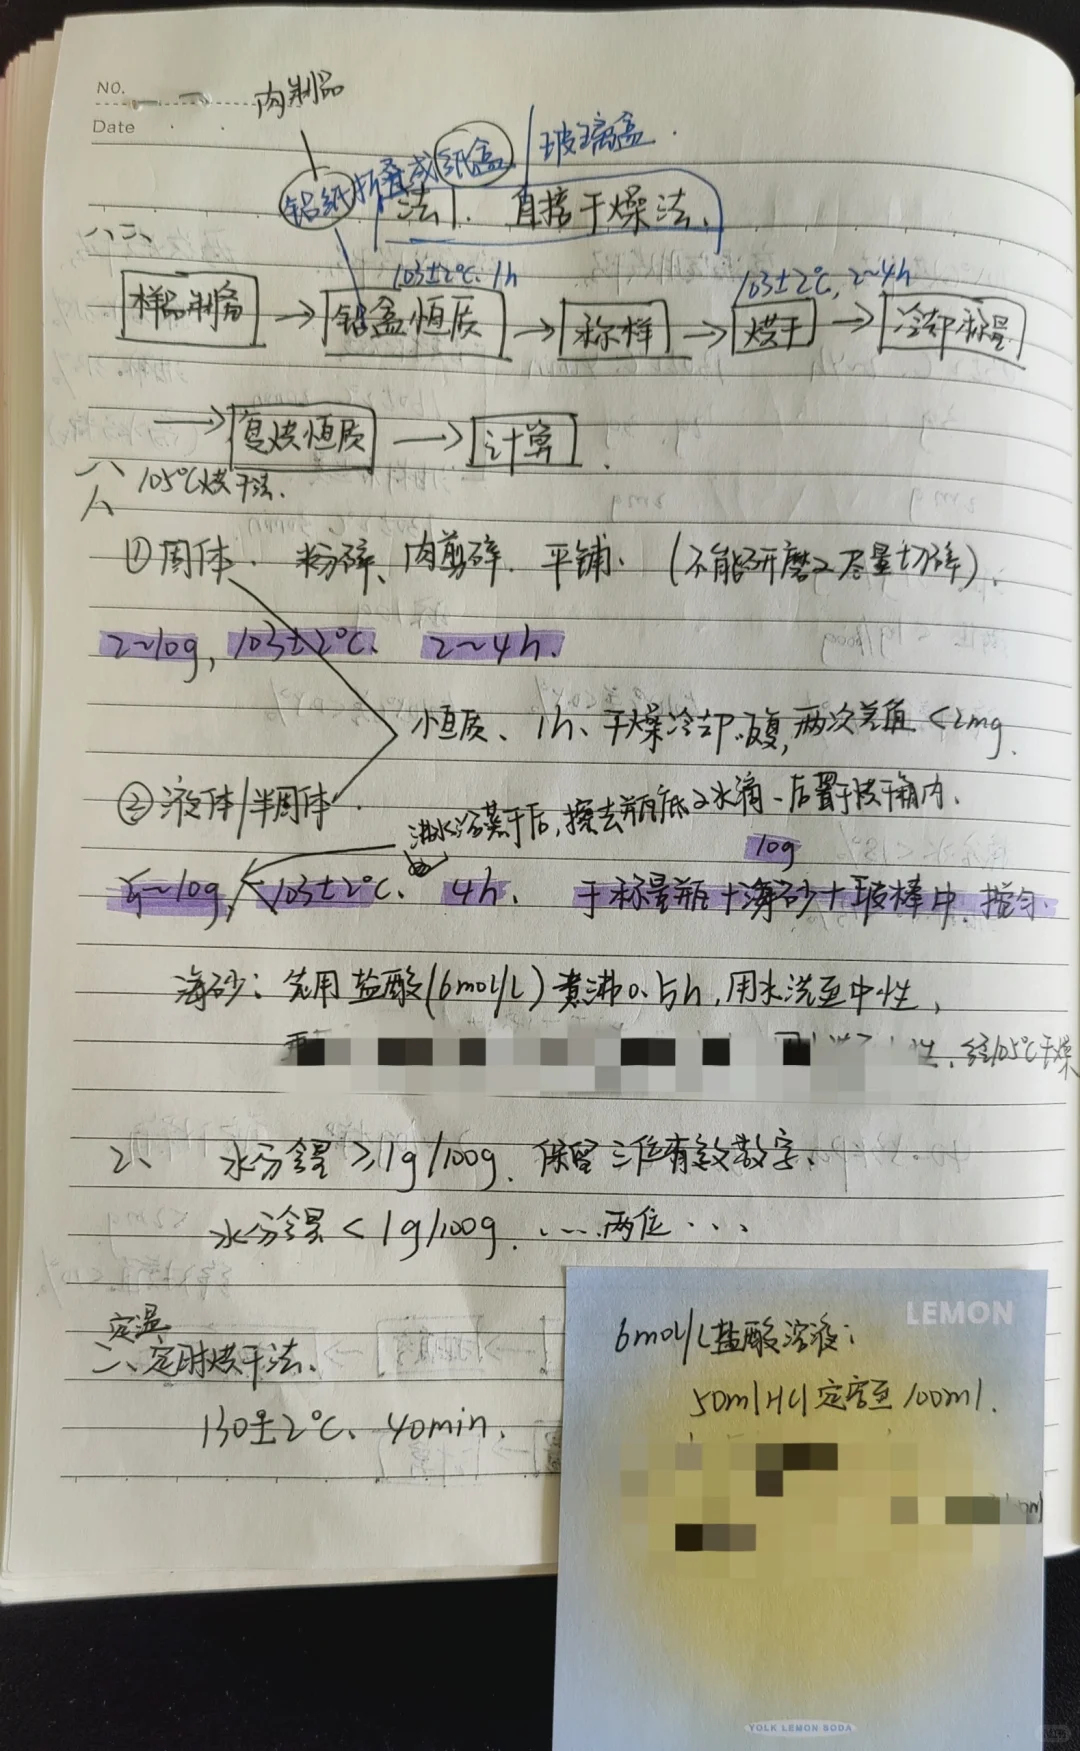 NO.
Date
肉制品
铝纸折叠成纸盒 | 玻璃盒.
法1. 直接干燥法、
103±2℃、1h
103±2℃, 2~4h
样品制备 → 铝盒恒质 → 称样 → 烘干 → 冷却称量
→ 复烘恒质 → 计算.
105℃烘干法.
①固体. 粉碎、肉剪碎. 平铺. (不能研磨之尽量切碎)、
2~10g, 103±2℃、 2~4h.
恒质、1h、干燥冷却. 反复, 两次差值<2mg.
②液体/半固体.
沸水浴蒸干后, 擦去瓶底之水滴、后置于烘干箱内.
10g
5~10g, 103±2℃、 4h. 于称量瓶+海砂+玻棒中.
海砂: 先用盐酸(6mol/L)煮沸0.5h, 用水洗至中性,
性, 经105℃干燥
2、 水分含量≥1g/100g. 保留三位有效数字、
水分含量<1g/100g. ... 两位...
定温
二、定时烘干法、
130±2℃、40min.
LEMON
6mol/L盐酸溶液:
50ml HCl定容至100ml.
YOLK LEMON SODA